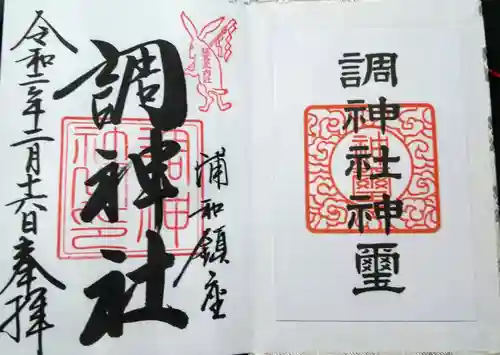 浦和鎮座
調神社
令和二年二月十六日奉拝
調神社神璽